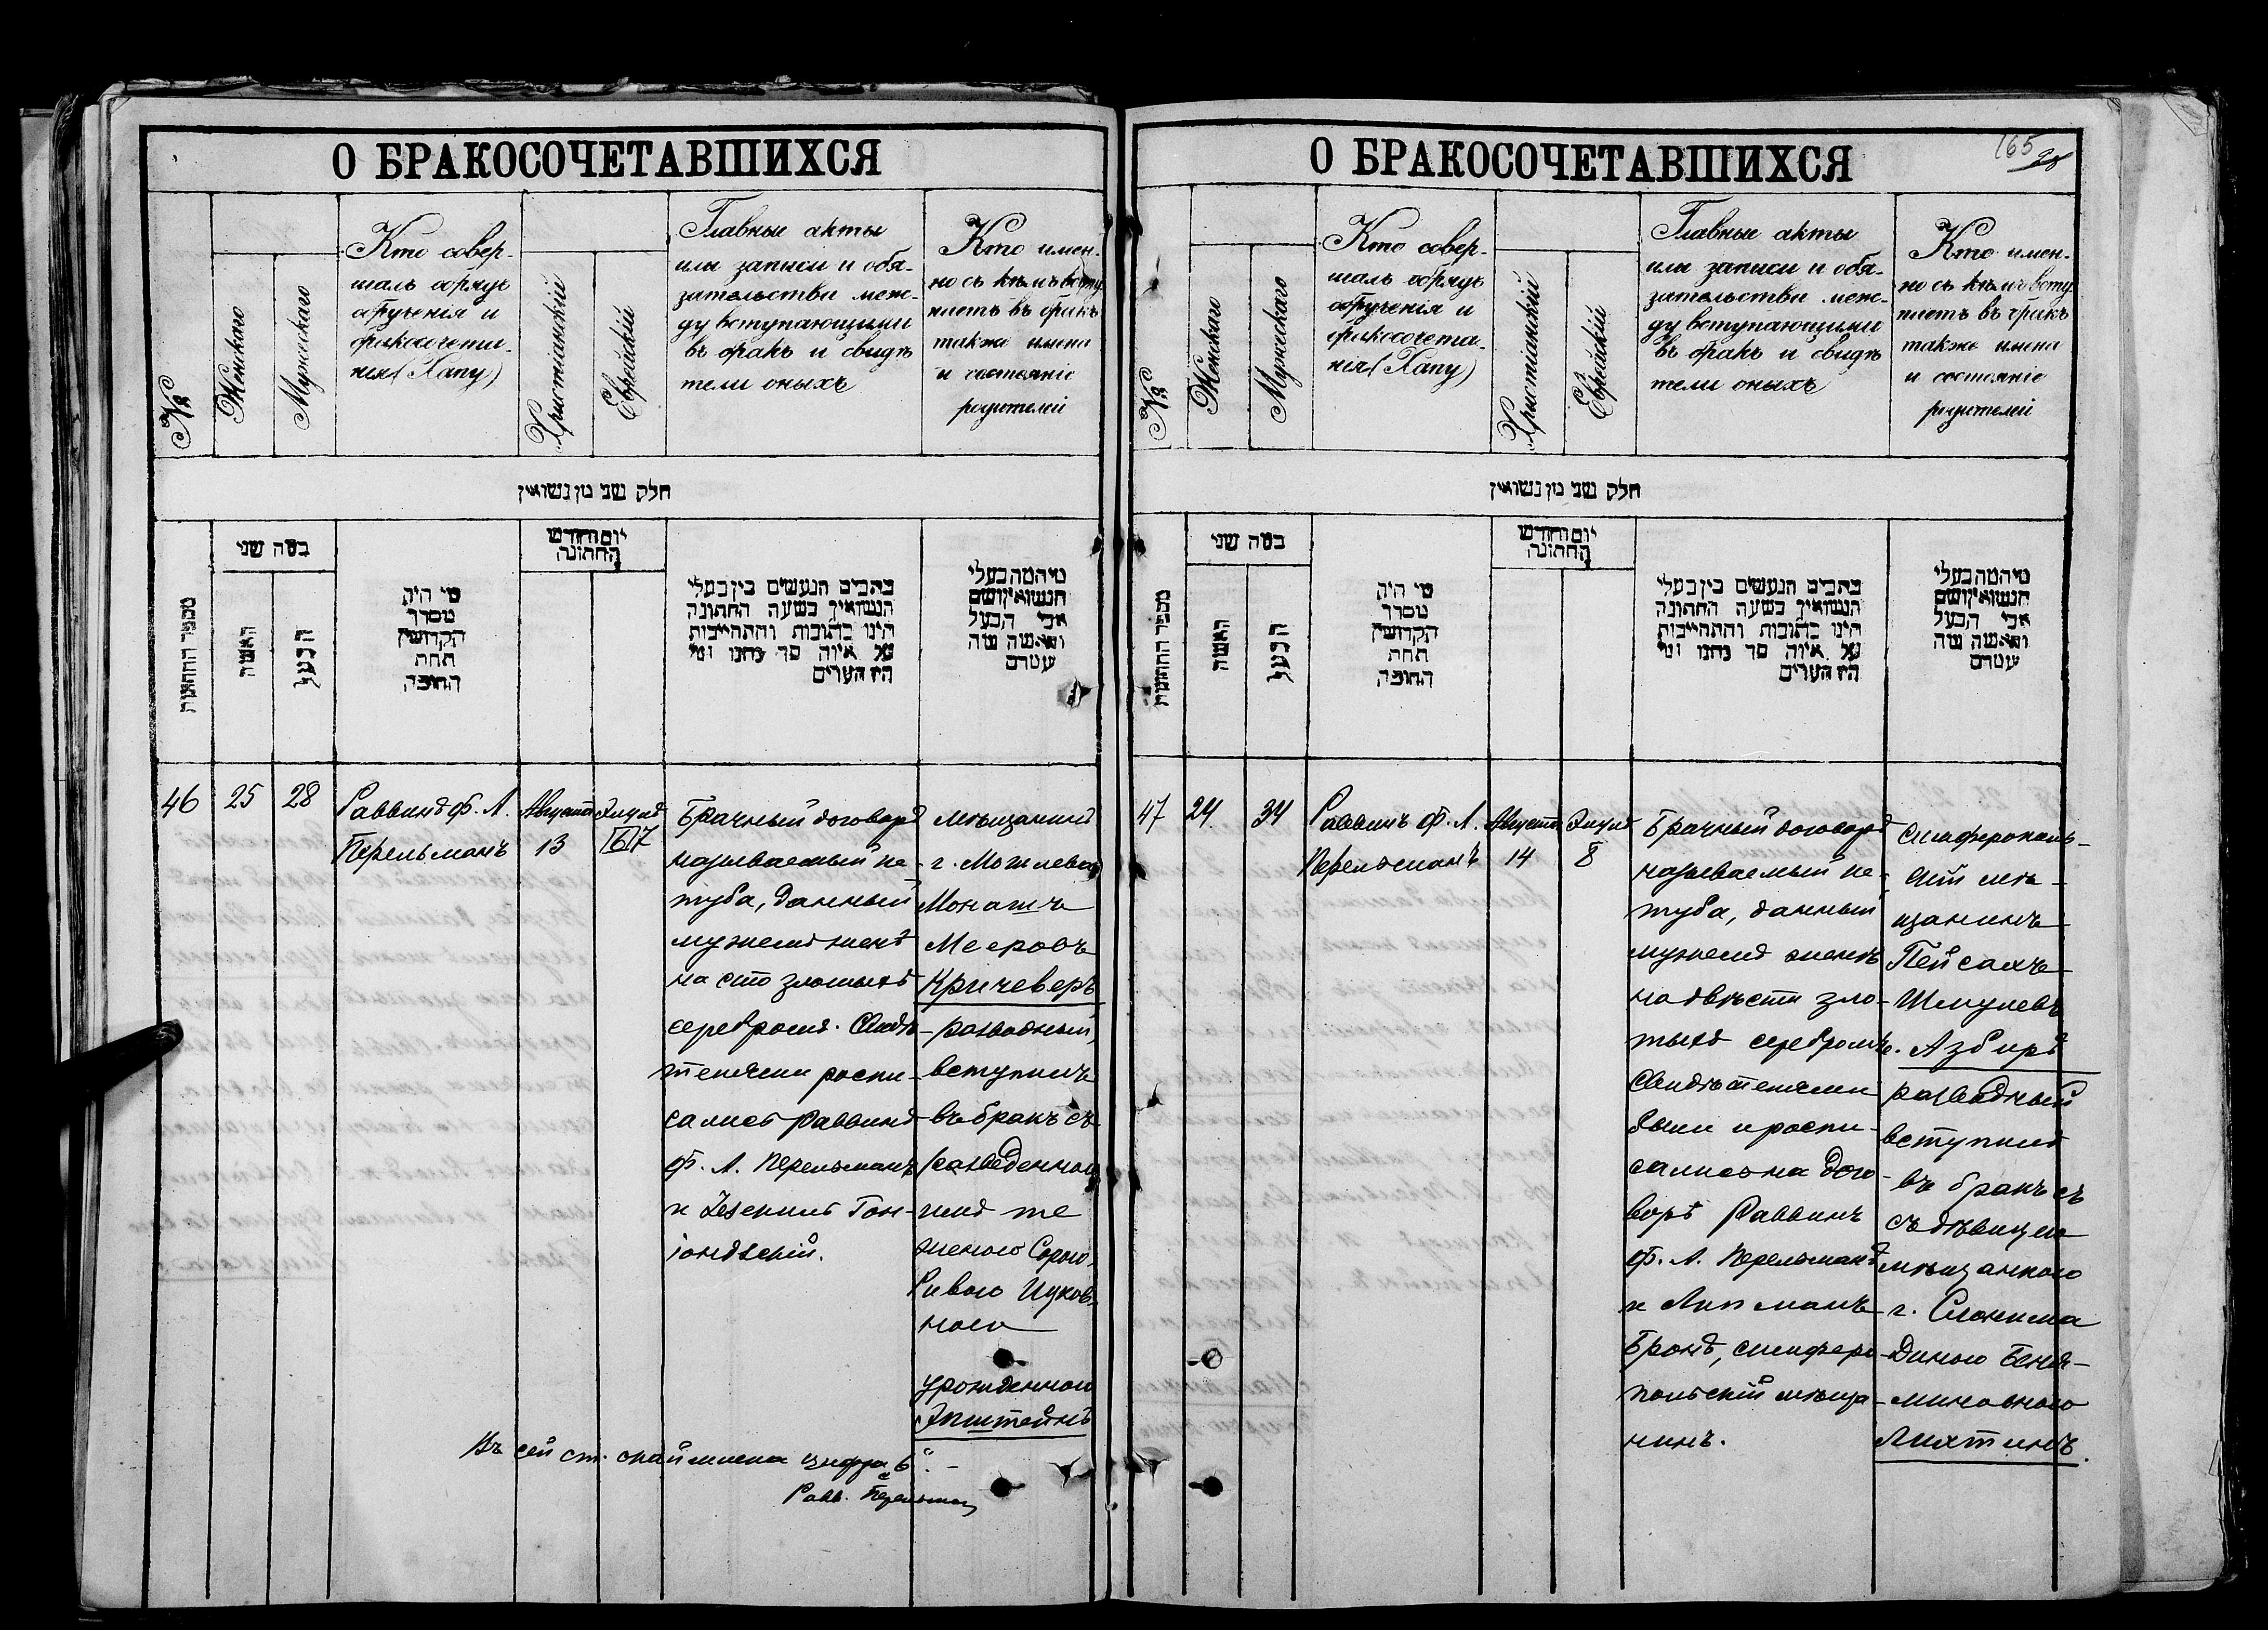 О БРАКОСОЧЕТАВШИХСЯ
№
Женскаго
Мужескаго
Кто совер-
шалъ обрядъ
обрученія и
бракосочета-
нія (Хапу)
Христіанскій
Еврейскій
Главные акты
или записи и обя-
зательства меж-
ду вступающими
въ бракъ и свидѣ
тели оныхъ
Кто имен-
но съ кѣмъ всту
паетъ въ бракъ
также имена
и состояніе
родителей
חלק שני מן נשואין
מספר החתונות
כמה שני
האשה
הבעל
מי היה
מסדר
הקדושין
תחת
החופה
יום וחודש
החתונה
כתבים הנעשים בין בעלי
הנשואין בשעה החתונה
היינו כתובות והתחייבות
על איזה סך נתנו ומי
היו העדים
מי המה בעלי
הנשואין ושם
אבי הבעל
והאשה ומה
מעמדם
46
25
28
Раввинъ Ф. Л.
Перельманъ
Августа
13
Элулъ
6 7
Брачный договоръ
называемый ке-
туба, данный
мужемъ женѣ
на сто злотыхъ
серебромъ. Свидѣ-
телями распи-
сались Раввинъ
Ф. Л. Перельманъ
и
Мѣщанинъ
г. Могилева
Монашъ
Мееровъ
Кричеверъ
разводный,
вступилъ
въ бракъ съ
разведенною
имъ же
женою Сарою
Ривою Ицков-
ною
урожденною
Эпштейнъ
Въ сей ст. цифра „6“. –
Равв. Перельманъ
О БРАКОСОЧЕТАВШИХСЯ
165
28
№
Женскаго
Мужескаго
Кто совер-
шалъ обрядъ
обрученія и
бракосочета-
нія (Хапу)
Христіанскій
Еврейскій
Главные акты
или записи и обя-
зательства меж-
ду вступающими
въ бракъ и свидѣ
тели оныхъ
Кто имен-
но съ кѣмъ всту
паетъ въ бракъ
также имена
и состояніе
родителей
חלק שני מן נשואין
מספר החתונות
כמה שני
האשה
הבעל
מי היה
מסדר
הקדושין
תחת
החופה
יום וחודש
החתונה
כתבים הנעשים בין בעלי
הנשואין בשעה החתונה
היינו כתובות והתחייבות
על איזה סך נתנו ומי
היו העדים
מי המה בעלי
הנשואין ושם
אבי הבעל
והאשה ומה
מעמדם
47
24
34
Раввинъ Ф. Л.
Перельманъ
Августа
14
Элулъ
8
Брачный договоръ
называемый ке-
туба, данный
мужемъ женѣ
на двѣсти зло-
тыхъ серебромъ.
Свидѣтелями
были и распи-
сались на дого-
ворѣ Раввинъ
Ф. Л. Перельманъ
и Липманъ
Бронъ, симферо-
польскій мѣща-
нинъ.
Симферополь-
скій мѣ-
щанинъ
Пейсахъ
Шмулевъ
Азбиръ
разводный
вступилъ
въ бракъ съ
съ дѣвицею
мѣщанкою
г. Слонима
Диною Бенья-
миновною
Лихтинъ.